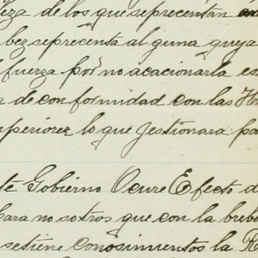 leza de los que seprecentan
bez seprecenta alguna quya
fuerza por no acacionarla
a de conformidad con las
uperiorez lo que jestionara pa
te Gobierno Ocure Efecto d
para nosotros que con la breb
setiene conosimientos la R